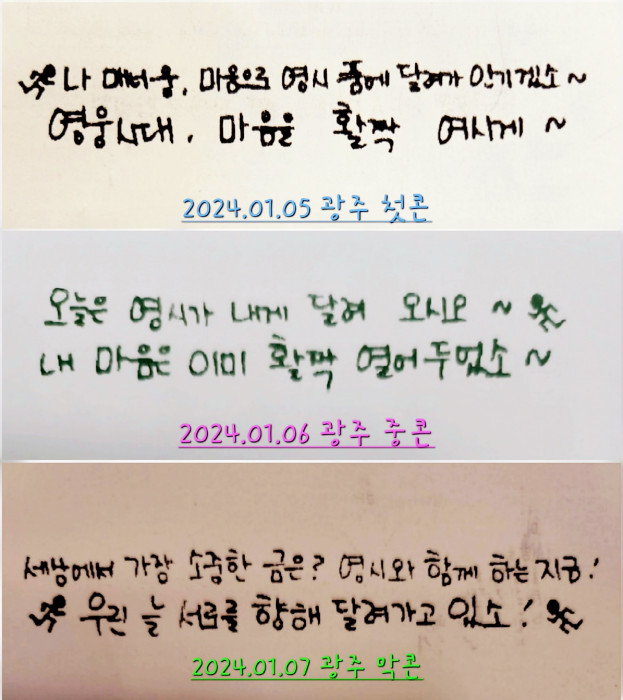 나 매더웅, 마음으로 영시 품에 달려가 안기겠소~
영웅시대, 마음을 활짝 여시게 ~
2024.01.05 광주 첫콘
오늘은 영시가 내게 달려 오시오 ~
내 마음은 이미 활짝 열어두었소~
2024.01.06 광주 중콘
세상에서 가장 소중한 금은? 영시와 함께 하는 지금!
우린 늘 서로를 향해 달려가고 있소!
2024.01.07 광주 막콘